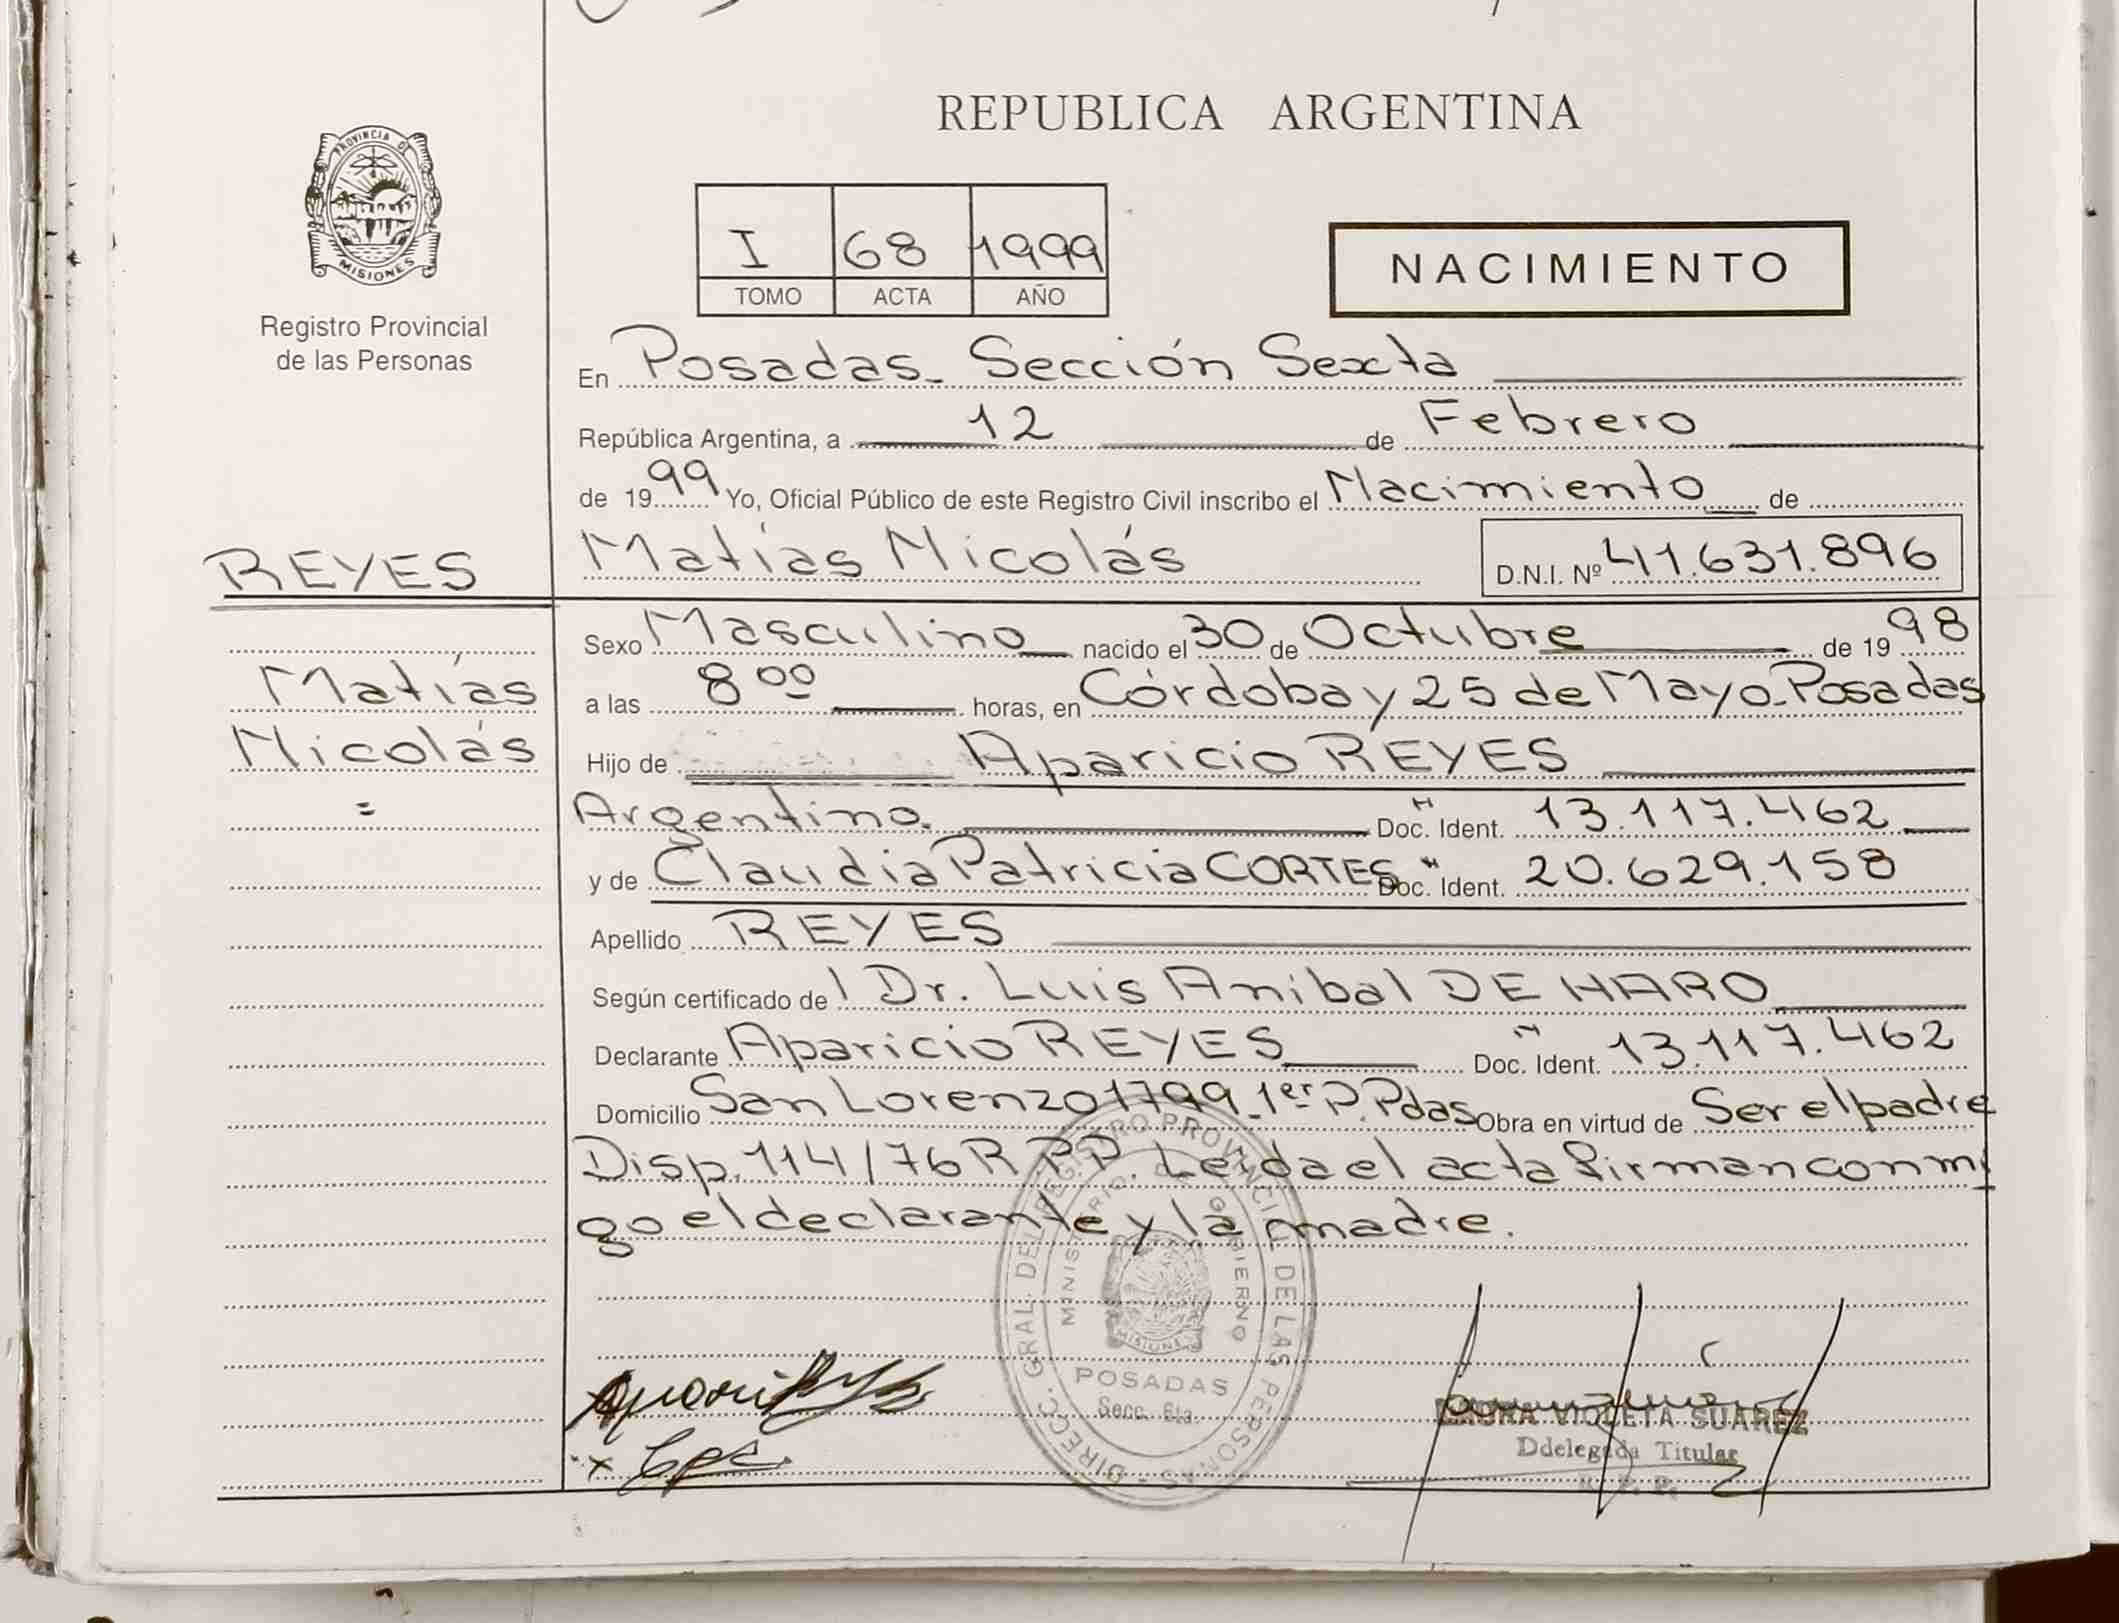 REPUBLICA ARGENTINA
PROVINCIA DE
MISIONES
Registro Provincial
de las Personas
I 68 1999
TOMO ACTA AÑO
NACIMIENTO
En Posadas_ Sección Sexta
República Argentina, a 12 de Febrero
de 1999 Yo, Oficial Público de este Registro Civil inscribo el Nacimiento de
REYES
Matías Nicolás
Matías Nicolás D.N.I. Nº 41.631.896
Sexo Masculino nacido el 30 de Octubre de 1998
a las 8 00 horas, en Córdoba y 25 de Mayo_Posadas
Hijo de Aparicio REYES
Argentino. Doc. Ident. 13.117.462
y de Claudia Patricia CORTES Doc. Ident. 20.629.158
Apellido REYES
Según certificado del Dr. Luis Anibal DE HARO
Declarante Aparicio REYES Doc. Ident. 13.117.462
Domicilio San Lorenzo 1799_1er P. Pdas Obra en virtud de Ser el padre
Disp. 114/76 R.P.P. Leida el acta firman conmi
go el declarante y la madre.
DIRECC. GRAL. DEL REGISTRO PROVINCIAL DE LAS PERSONAS
MINISTERIO DE GOBIERNO
MISIONES
POSADAS
Secc. 6ta.
LAURA VIOLETA SUAREZ
Ddelegada Titular
R. P. P.